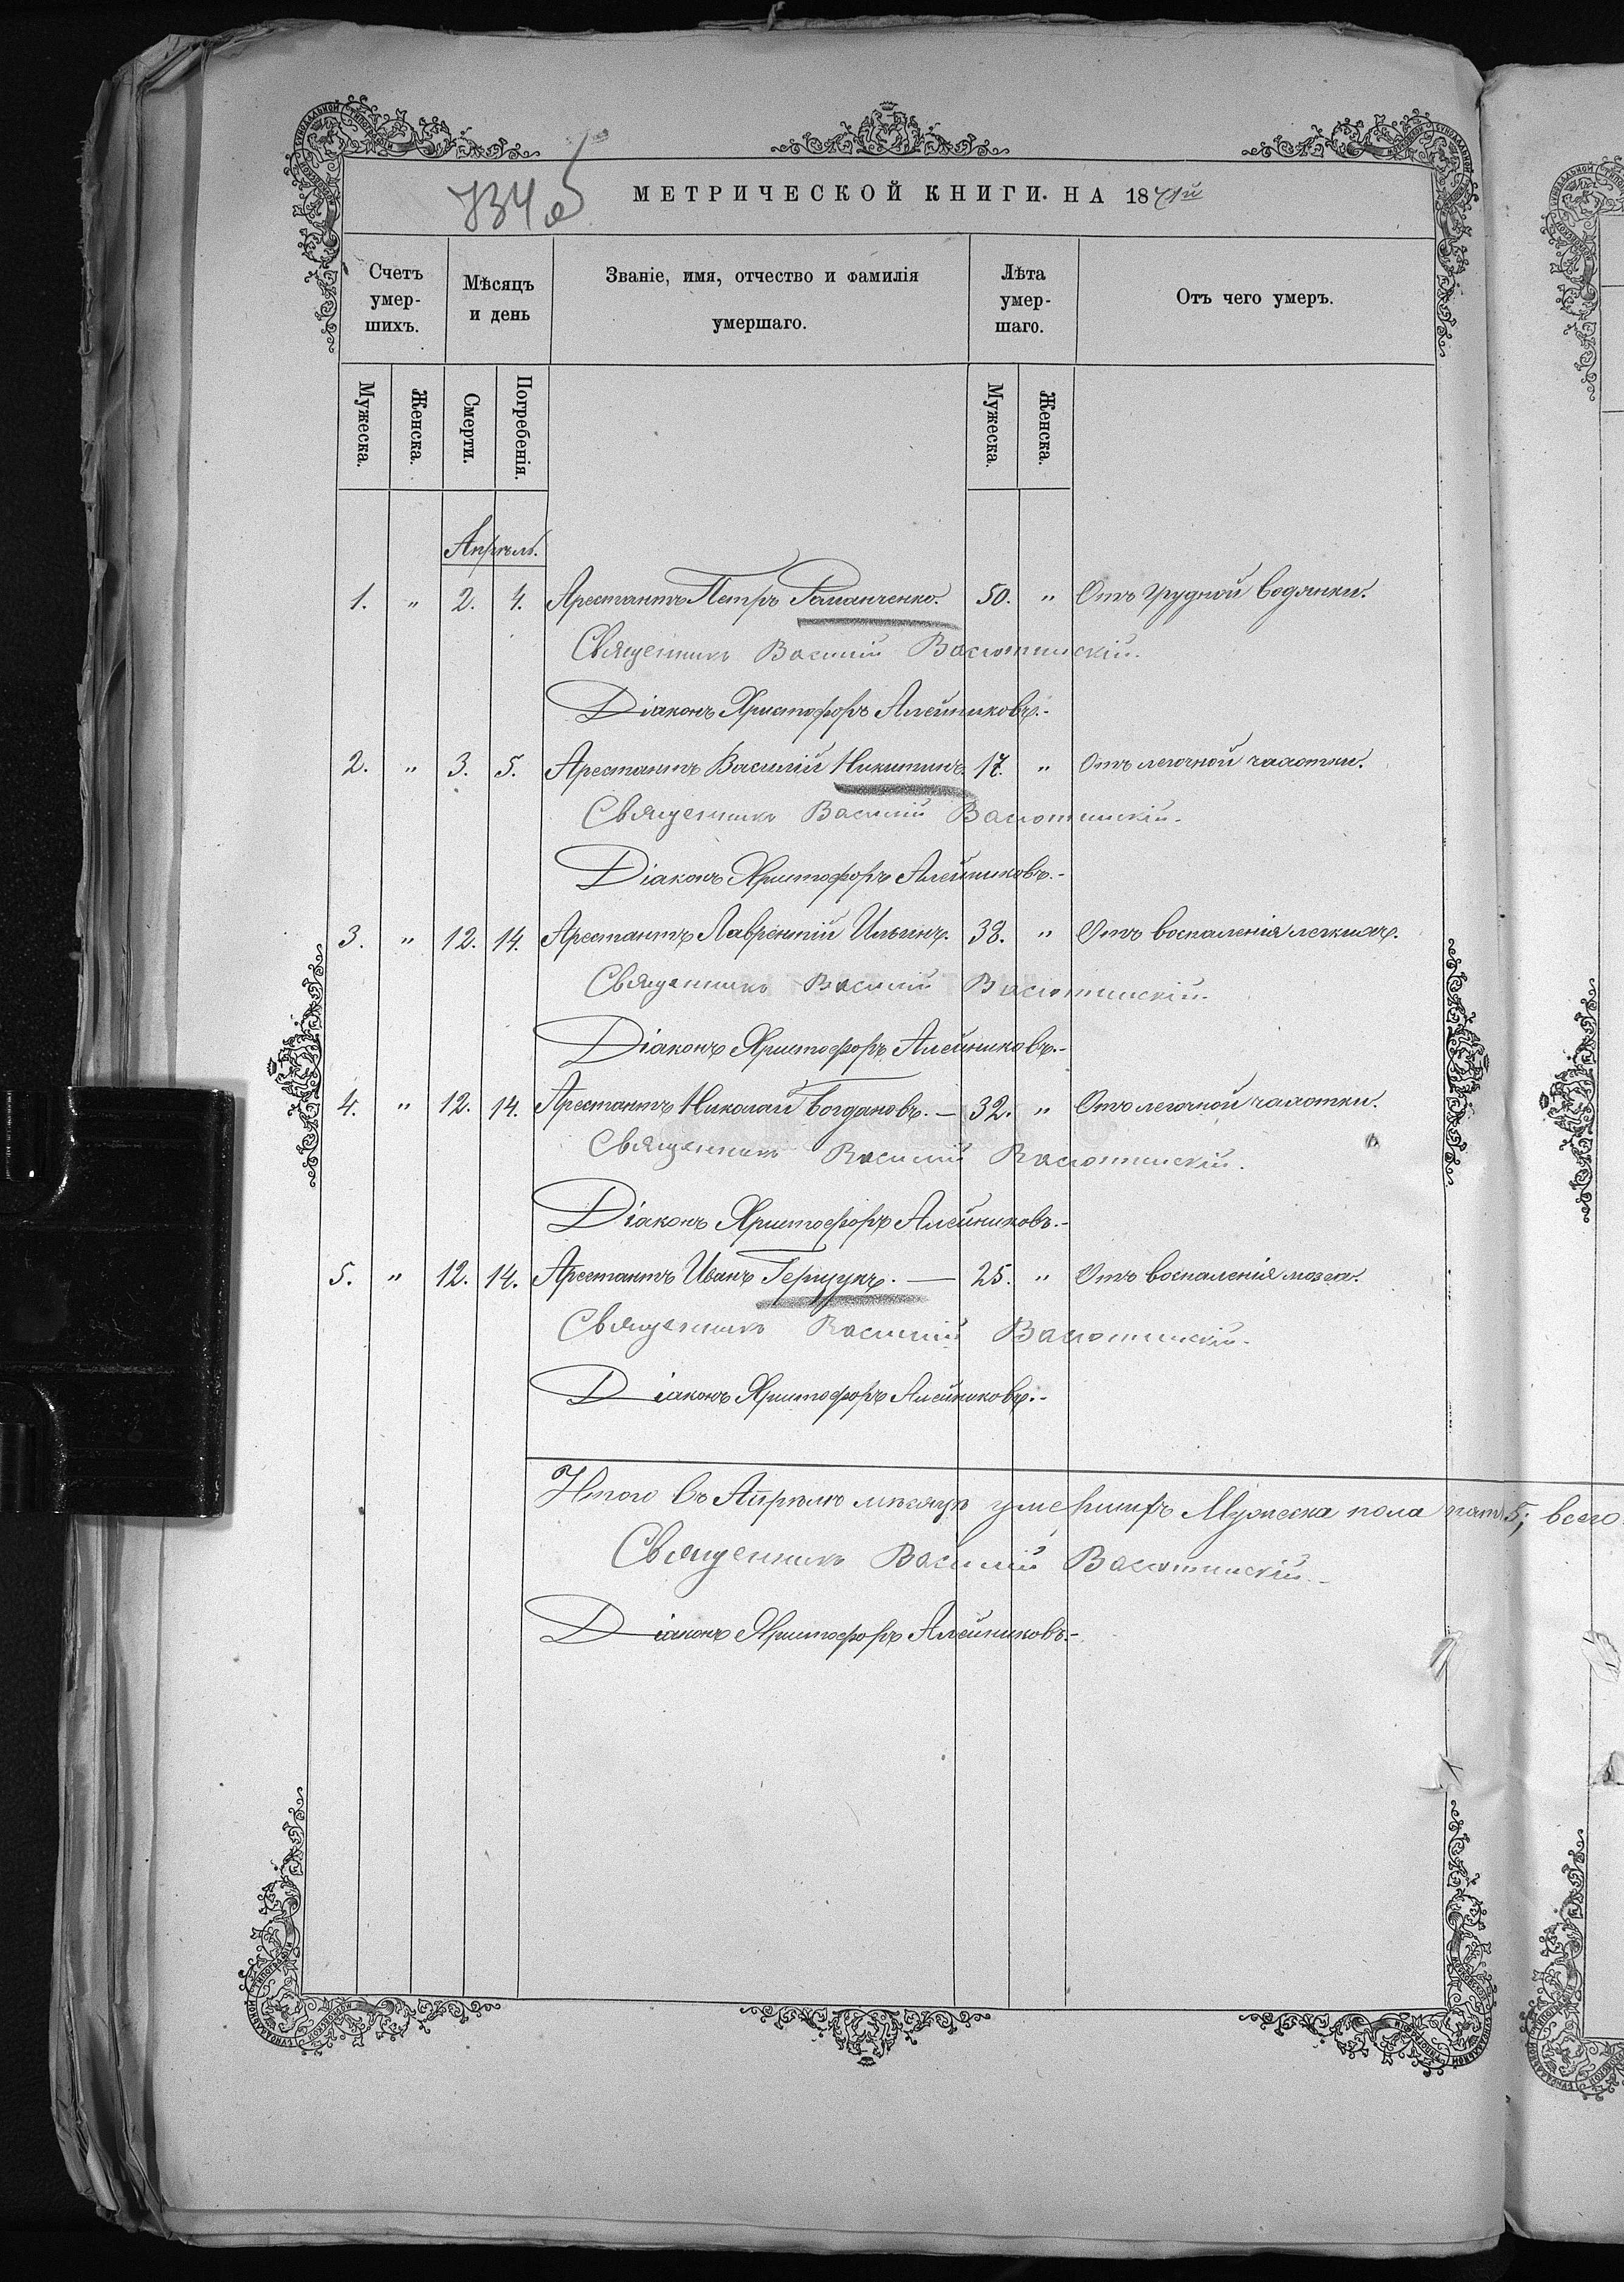 734 об
МЕТРИЧЕСКОЙ КНИГИ. НА 1871й
Счетъ умер-шихъ. Мѣсяцъ и день Званіе, имя, отчество и фамилія умершаго. Лѣта умер-шаго. Отъ чего умеръ.
Мужеска. Женска. Смерти. Погребенія. Мужеска. Женска.
Апрѣль.
1. " 2. 4. Арестантъ Петръ Романченко. 50. " Отъ грудной водянки.
Священникъ Василій Васютинскій.
Діаконъ Христофоръ Алейниковъ.-
2. " 3. 5. Арестантъ Василій Никитинъ. 17. " Отъ легочной чахотки.
Священникъ Василій Васютинскій.
Діаконъ Христофоръ Алейниковъ.-
3. " 12. 14. Арестантъ Лаврентій Ильинъ. 38. " Отъ воспаленія легкихъ.
Священникъ Василій Васютинскій.
Діаконъ Христофоръ Алейниковъ.-
4. " 12. 14. Арестантъ Николай Богдановъ. — 32. " Отъ легочной чахотки.
Священникъ Василій Васютинскій.
Діаконъ Христофоръ Алейниковъ.-
5. " 12. 14. Арестантъ Иванъ Герцукъ. — 25. " Отъ воспаленія мозга.
Священникъ Василій Васютинскій.
Діаконъ Христофоръ Алейниковъ.-
Итого въ Апрѣлѣ мѣсяцѣ умершихъ Мужеска пола пять 5; всего
Священникъ Василій Васютинскій.
Діаконъ Христофоръ Алейниковъ.-